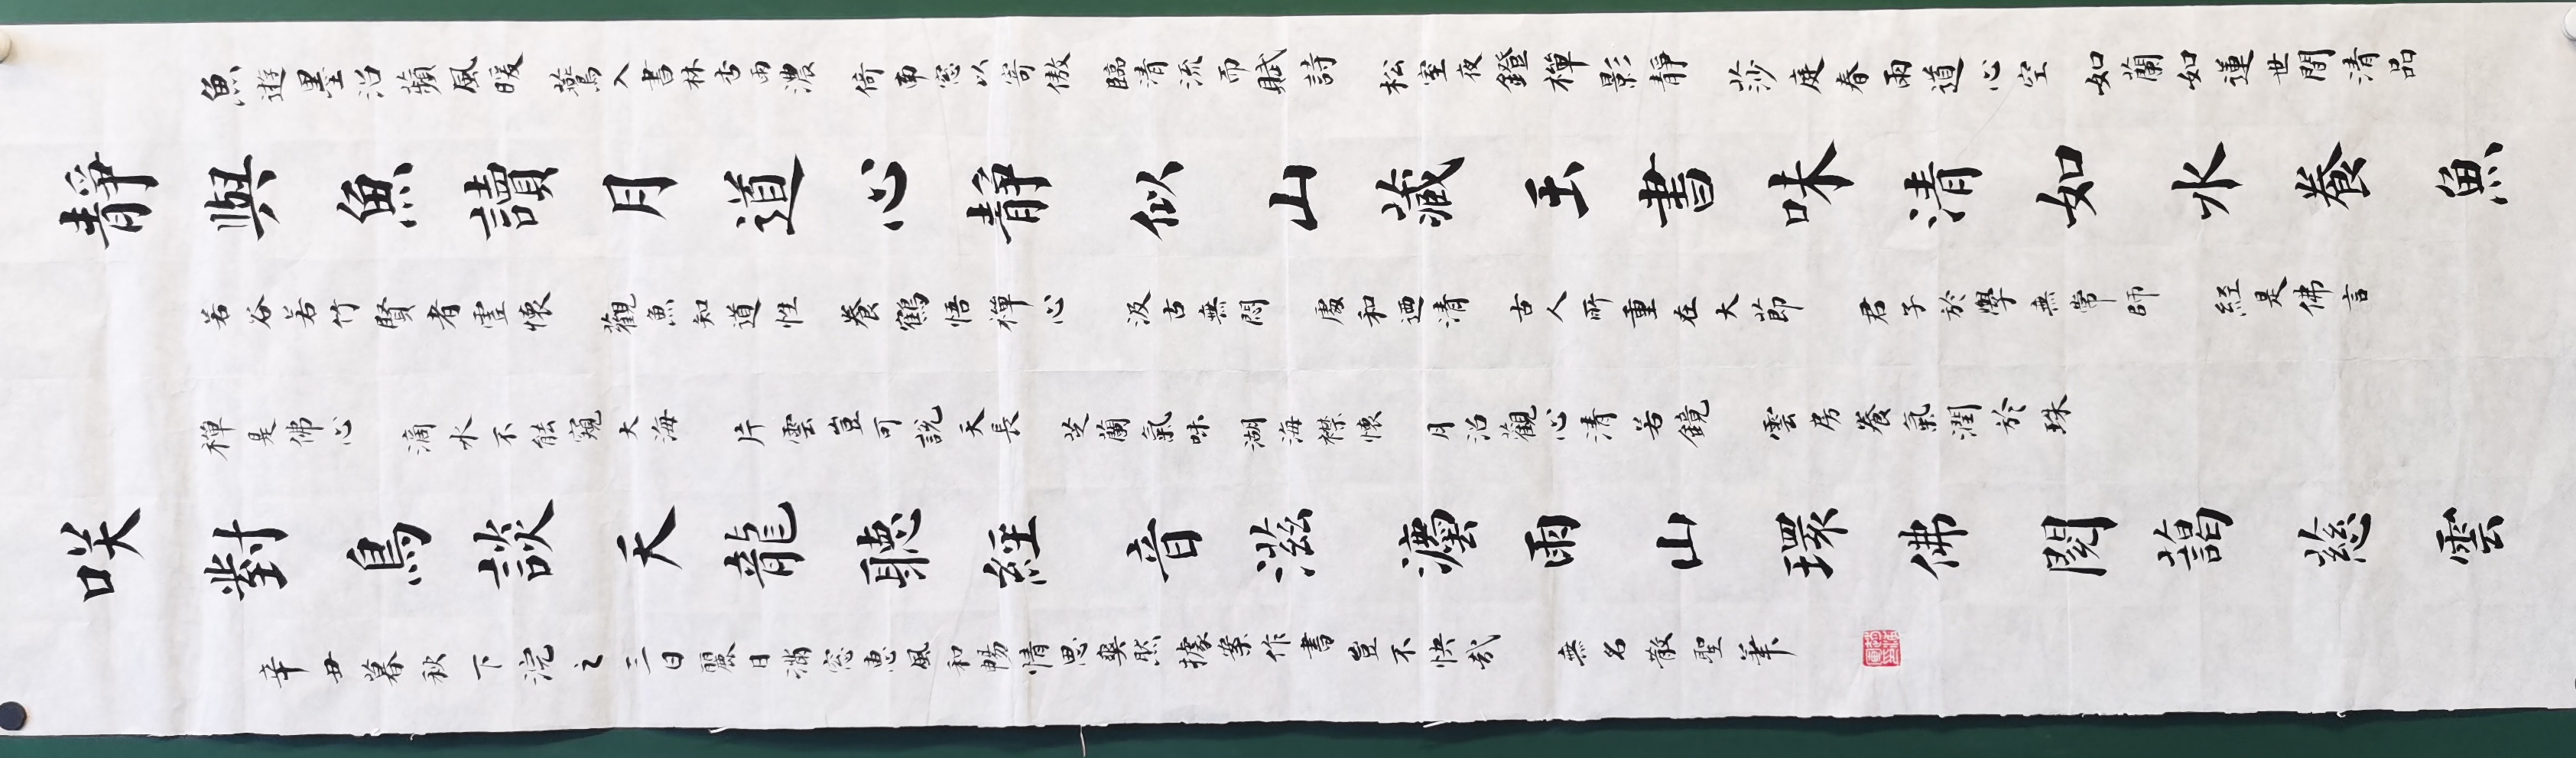 魚遊墨沼蘋風暖 鶯入書林杏雨濃 倚南窓以寄傲 臨清流而賦詩 松室夜鐙禪影靜 莎庭春雨道心空 如蘭如蓮世間清品
靜與魚讀月道心靜似山藏玉書味清如水養魚
若谷若竹賢者虛懷 觀魚知道性 養鶴悟禪心 汲古無悶 處和迺清 古人所重在大節 君子於學無常師 經是佛言
禪是佛心 滴水不能窺大海 片雲豈可說天長 芝蘭氣味 湖海襟懷 月沼觀心清若鏡 雲房養氣潤於珠
咲對鳥談天龍聽經音滋灋雨山環佛閣藹慈雲
辛丑暮秋下浣之三日麗日滿窓惠風和暢情思奐然據案作書豈不快哉 無名散聖筆